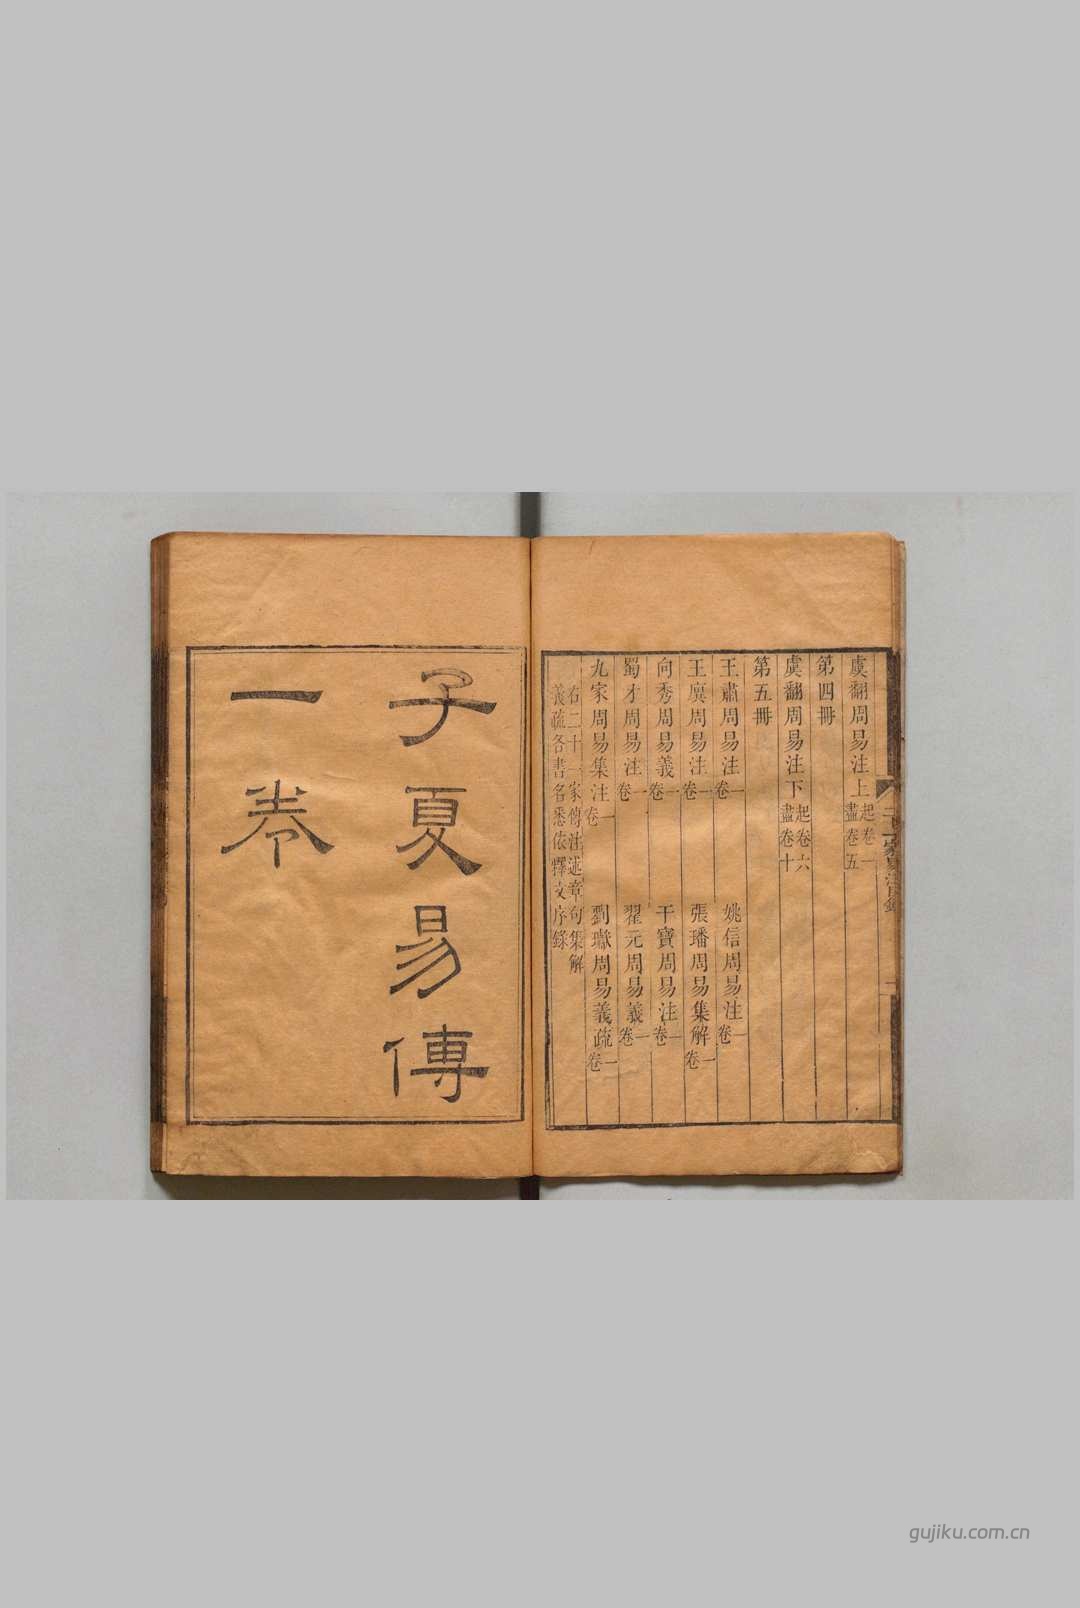 虞翻周易注上 起卷一盡卷五
第四冊
虞翻周易注下 起卷六盡卷十
第五冊
王肅周易注一卷 姚信周易注一卷
王廙周易注一卷 張璠周易集解一卷
向秀周易義一卷 干寶周易注一卷
蜀才周易注一卷 翟元周易義一卷
九家周易集注一卷 劉瓛周易義疏一卷
右二十一家傳注述章句集解
義疏各書名悉依釋文序錄
子夏易傳
一卷
gujiku.com.cn